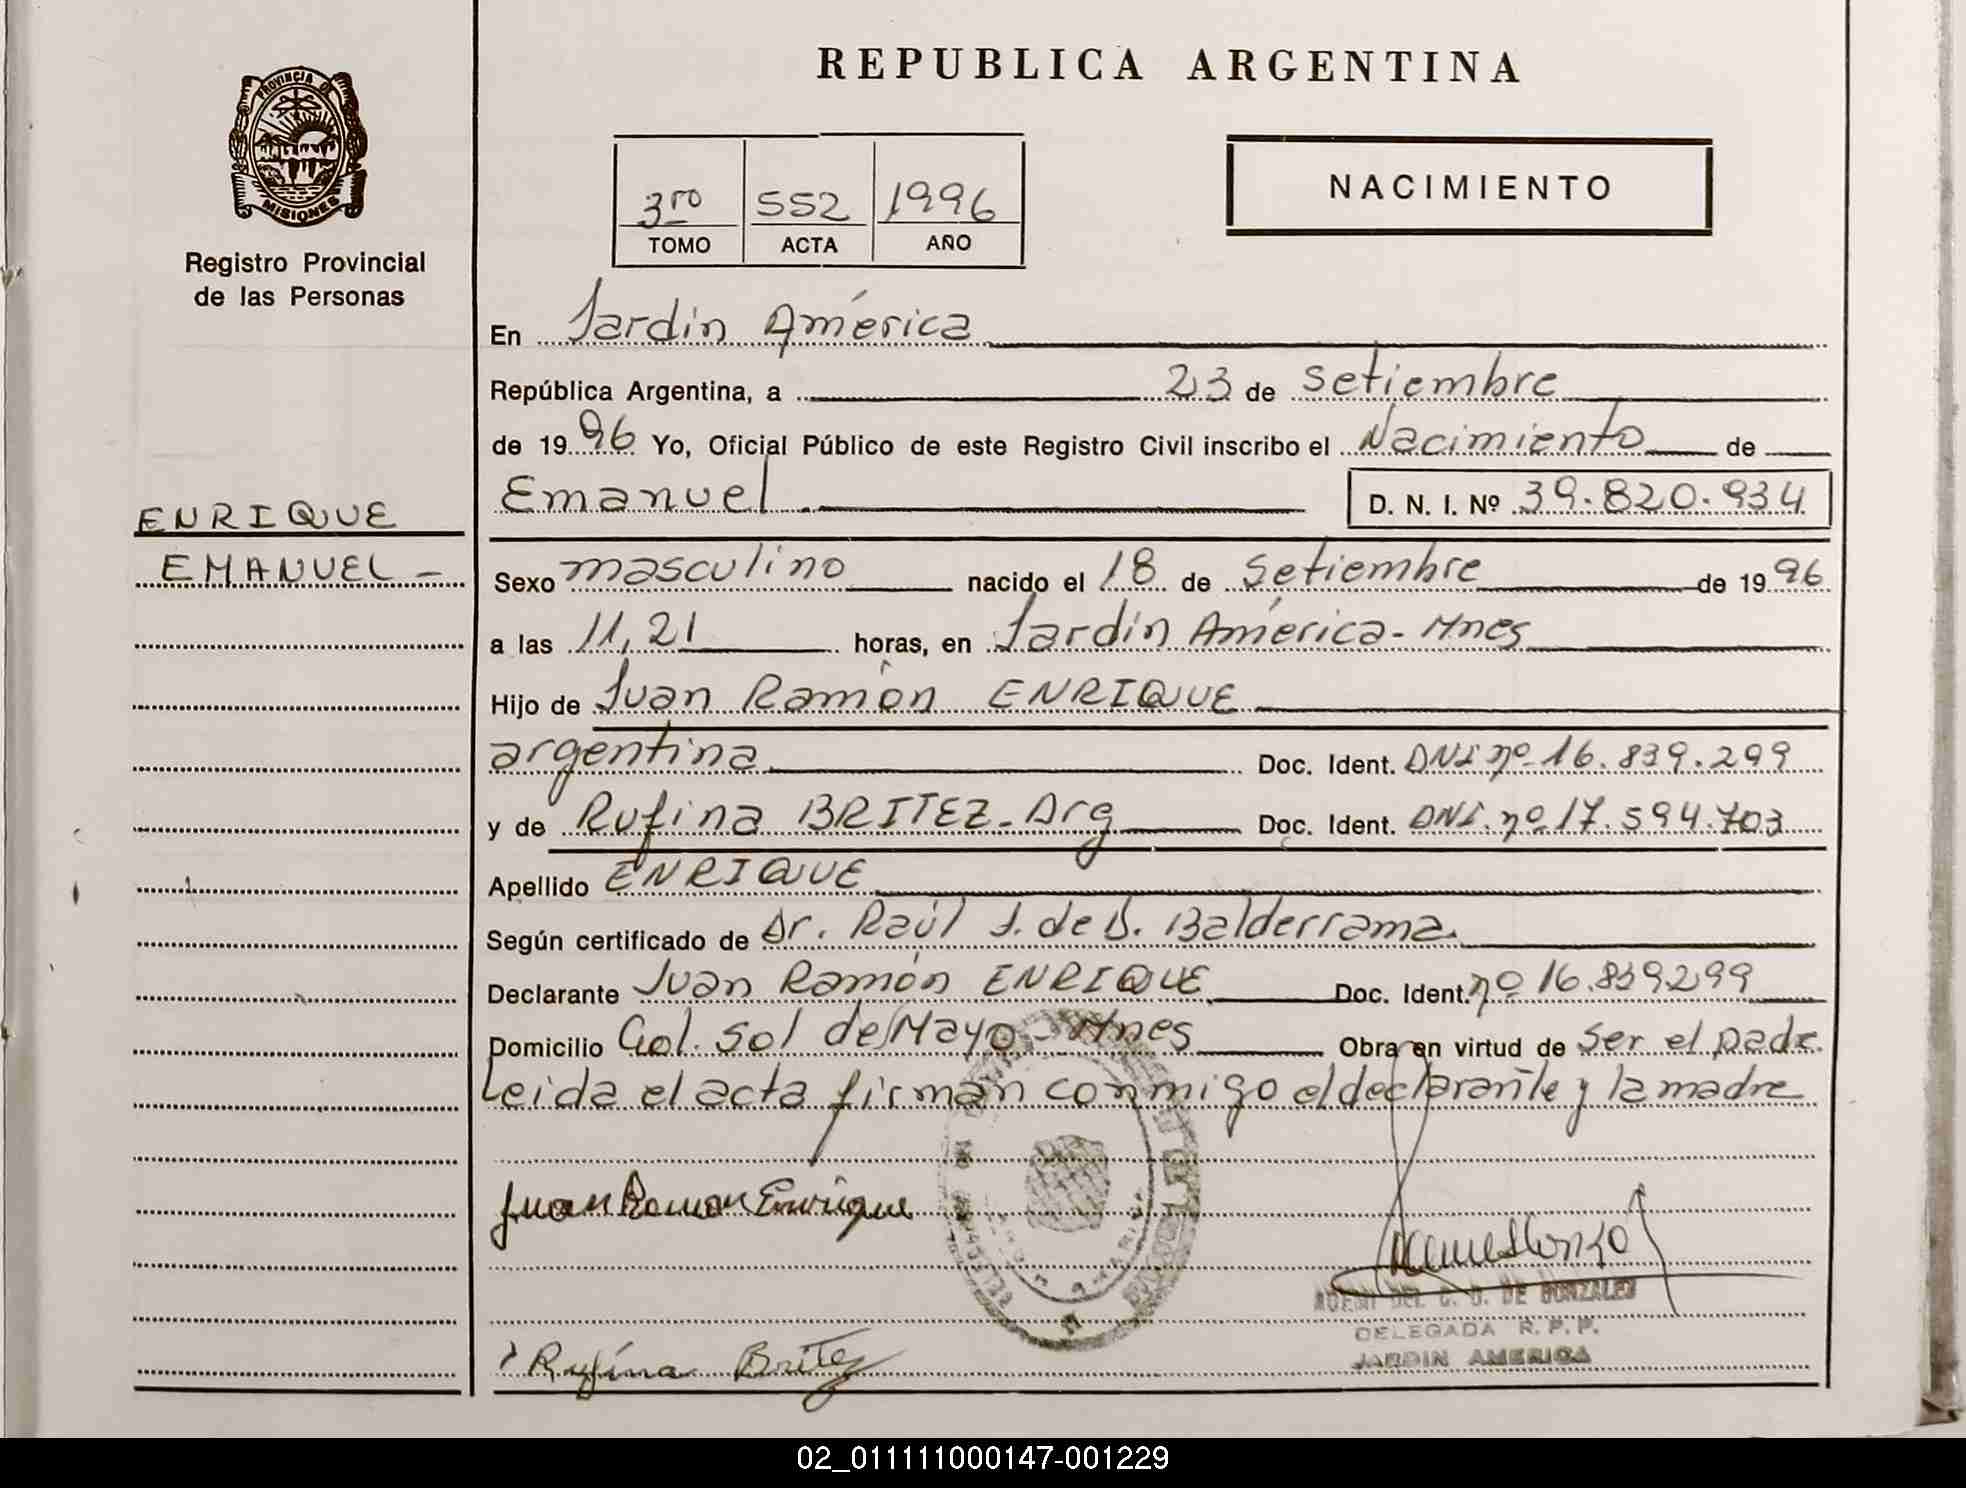 REPUBLICA ARGENTINA
PROVINCIA DE
MISIONES
Registro Provincial
de las Personas
3ro 552 1996
TOMO ACTA AÑO
NACIMIENTO
En Jardin América
República Argentina, a 23 de Setiembre
de 1996 Yo, Oficial Público de este Registro Civil inscribo el Nacimiento de
Emanuel. D. N. I. Nº 39.820.934
ENRIQUE
EMANUEL -
Sexo masculino nacido el 18 de Setiembre de 1996
a las 11,21 horas, en Jardin América - Mnes
Hijo de Juan Ramón ENRIQUE
argentina Doc. Ident. DNI nº 16.839.299
y de Rufina BRITEZ - Arg Doc. Ident. DNI. nº 17.594.703
Apellido ENRIQUE
Según certificado de Dr. Raúl J. de D. Balderrama.
Declarante Juan Ramón ENRIQUE Doc. Ident. nº 16.839299
Domicilio Col. Sol de Mayo - Mnes Obra en virtud de ser el padre
Leida el acta firman conmigo el declarante y la madre
Juan Ramon Enrique
DE GONZALEZ
DELEGADA R. P. P.
JARDIN AMERICA
Rufina Britez
02_011111000147-001229